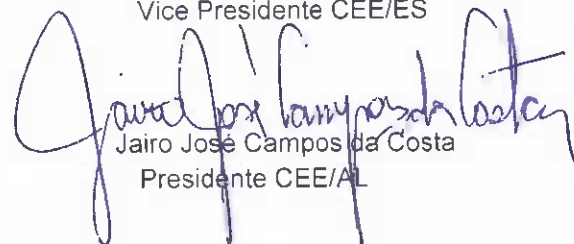 Vice Presidente CEE/ES
Jairo José Campos da Costa
Jairo José Campos da Costa
Presidente CEE/AL